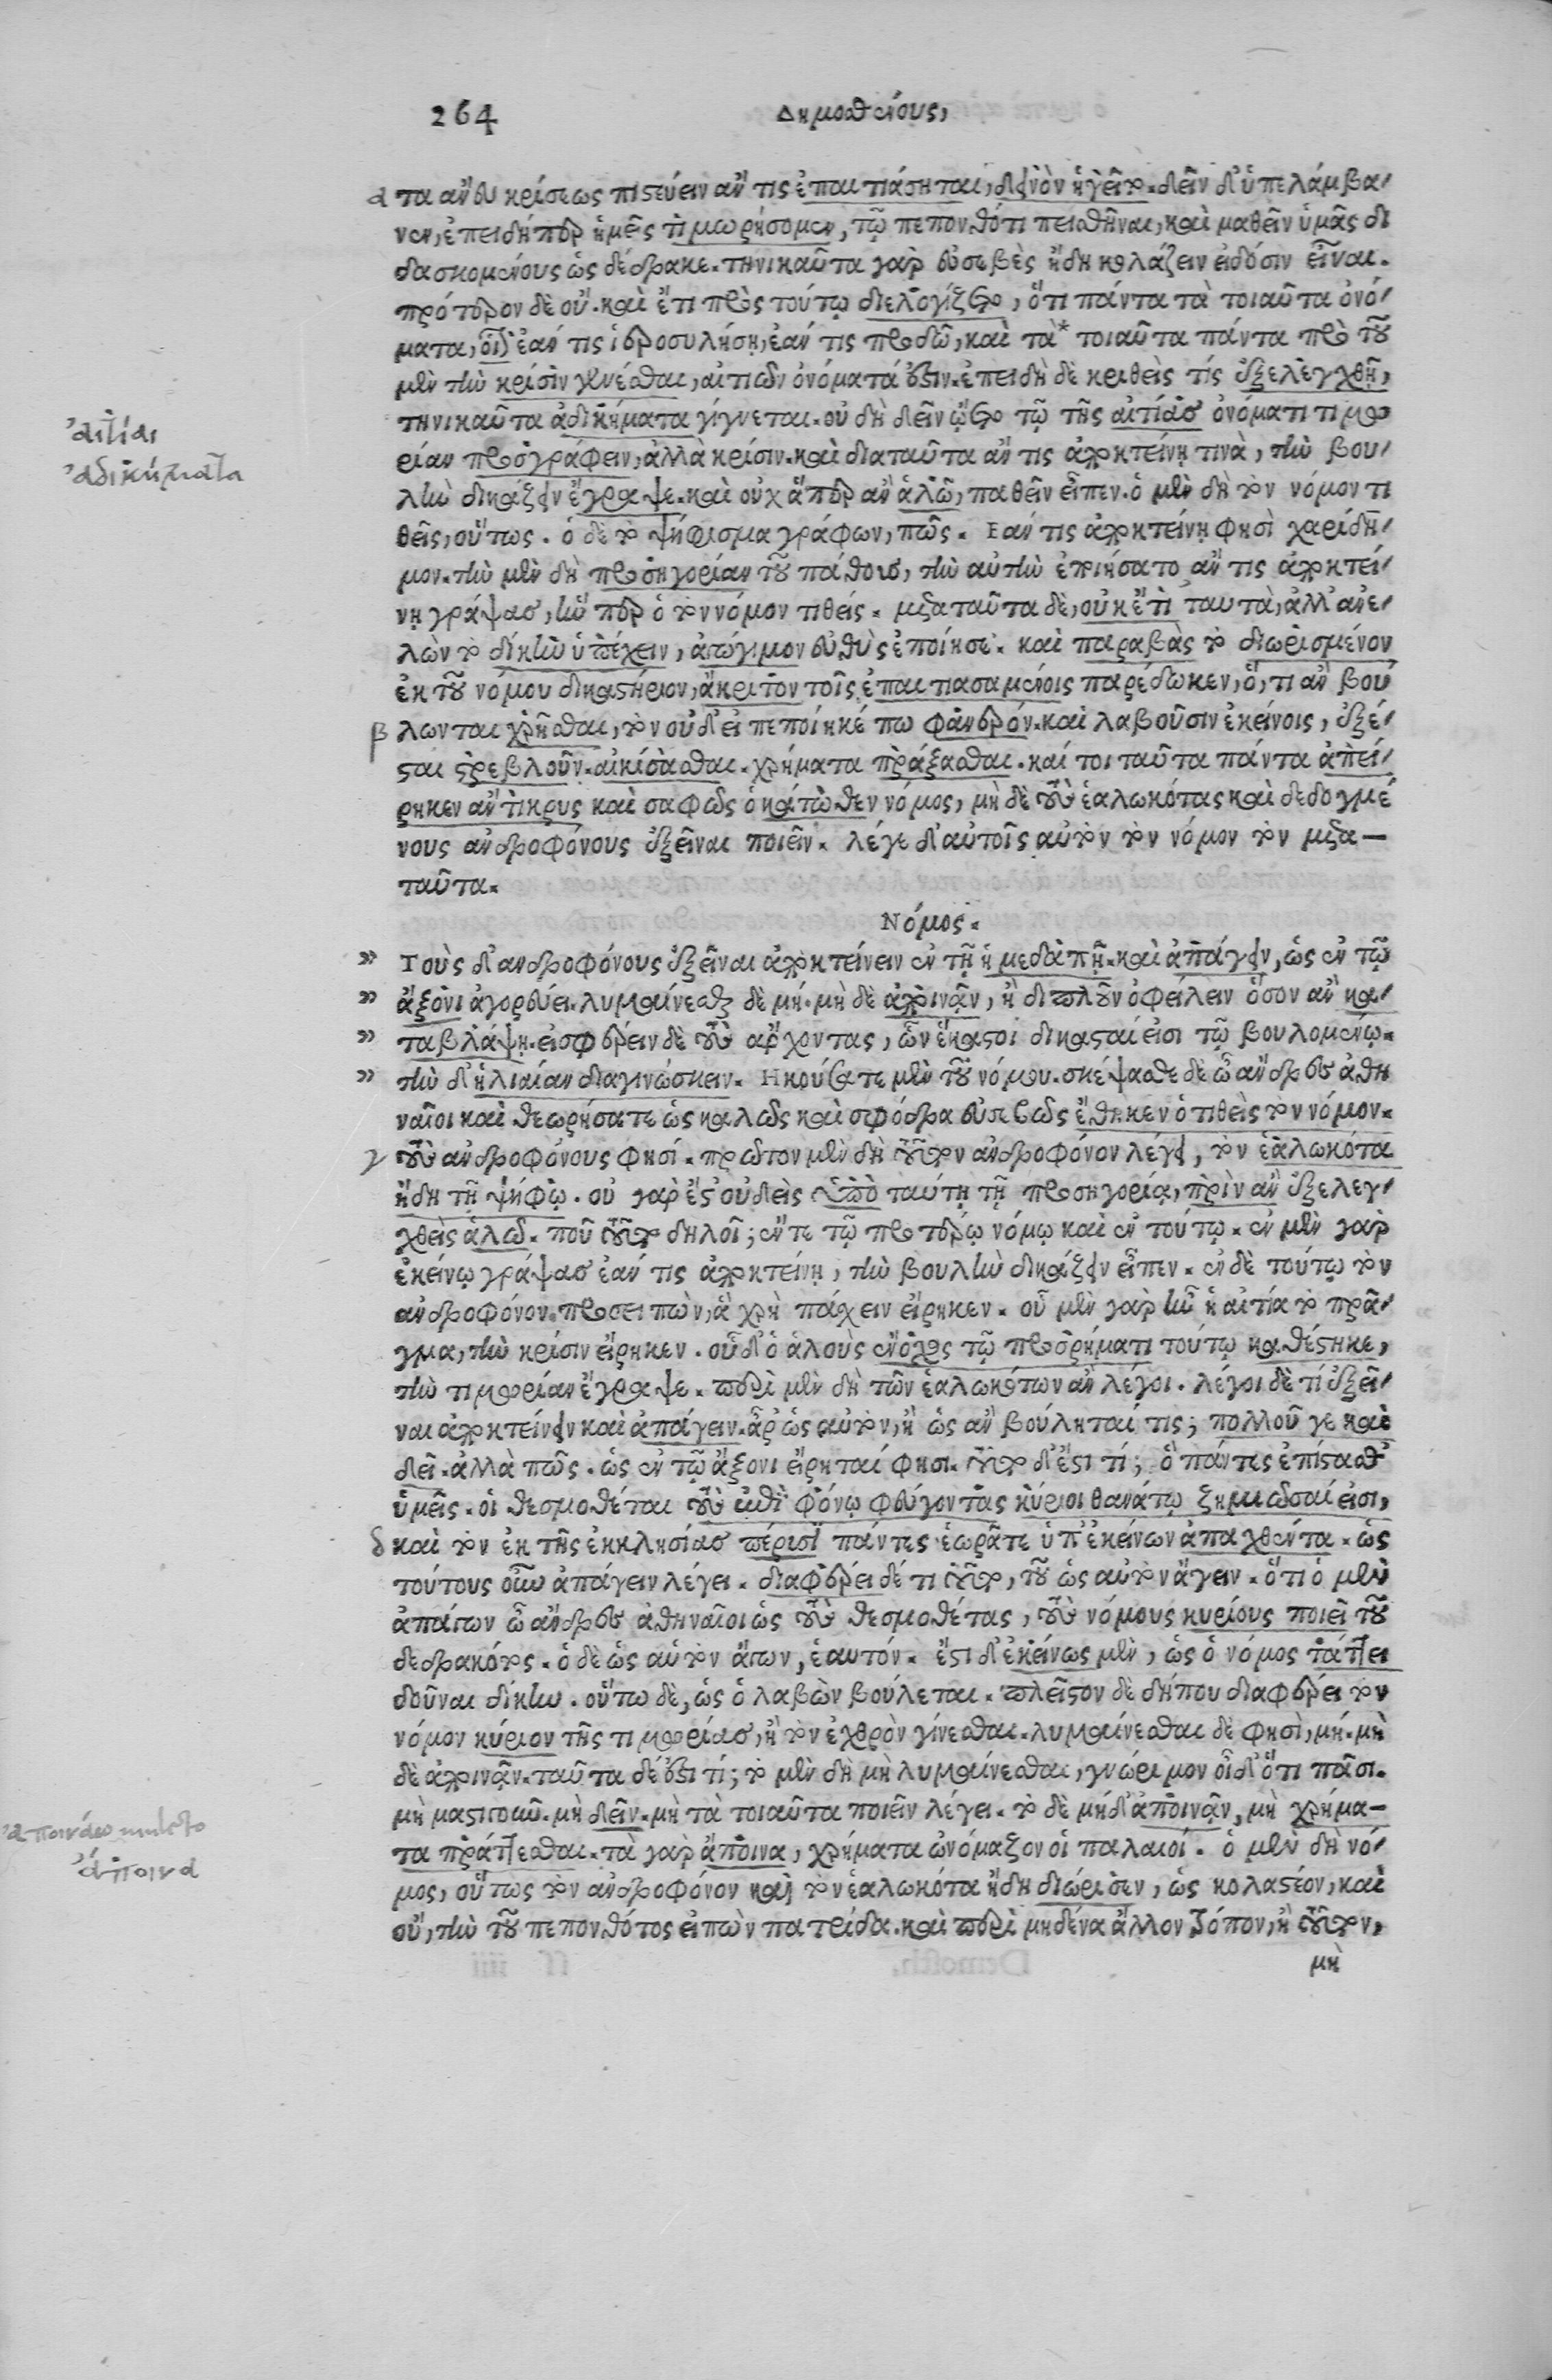 264 Δημοσθένους,
α τα ἄνευ κρίσεως πιστεύειν ἄν τις ἐπαιτιάσηται, δεινὸν ἡγεῖτο. δεῖν δ' ὑπελάμβα/
νεν, ἐπειδήπερ ἡμεῖς τιμωρήσομεν, τῷ πεπονθότι πεισθῆναι, καὶ μαθεῖν ὑμᾶς δι
δασκομένους ὡς δέδρακε. τηνικαῦτα γὰρ εὐσεβὲς ἤδη κολάζειν εἰδόσιν εἶναι.
πρότερον δὲ οὔ. καὶ ἔτι πρὸς τούτῳ διελογίζετο, ὅτι πάντα τὰ τοιαῦτα ὀνό/
ματα, οἷον ἐάν τις ἱεροσυλήσῃ, ἐάν τις προδῶ, καὶ τὰ* τοιαῦτα πάντα πρὸ τοῦ
μὲν τὴν κρίσιν γενέσθαι, αἰτιῶν ὀνόματά ἐστιν. ἐπειδὴ δὲ κριθεὶς τίς ἐξελέγχθῇ,
τηνικαῦτα ἀδικήματα γίγνεται. οὐ δὴ δεῖν ᾤετο τῷ τῆς αἰτίας ὀνόματι τιμω
αἰτίαι
ρίαν προσγράφειν, ἀλλὰ κρίσιν. καὶ διαταῦτα ἄν τις ἀποκτείνῃ τινὰ, τὴν βου/
ἀδικήματα
λὴν δικάζειν ἔγραψε. καὶ οὐχ ἅπερ ἂν ἁλῷ, παθεῖν εἶπεν. ὁ μὲν δὴ τὸν νόμον τι
θεὶς, οὕτως. ὁ δὲ τὸ ψήφισμα γράφων, πῶς. Ἐάν τις ἀποκτείνῃ φησὶ χαρίδη/
μον. τὴν μὲν δὴ προσηγορίαν τοῦ πάθους, τὴν αὐτὴν ἐποιήσατο ἄν τις ἀποκτεί/
νῃ γράψας, ἥνπερ ὁ τὸν νόμον τιθείς. μετα ταῦτα δὲ, οὐκ ἔτι ταυτὰ, ἀλλ' ἀνε/
λὼν τὸ δίκην ὑπέχειν, ἀγώγιμον εὐθὺς ἐποίησε. καὶ παραβὰς τὸ διωρισμένον
ἐκ τοῦ νόμου δικαστήριον, ἄκριτον τοῖς ἐπαιτιασαμένοις παρέδωκεν, ὅ, τι ἂν βού
β λωνται χρῆσθαι, τὸν οὐδ' εἰ πεποίηκέ πω φανερόν. καὶ λαβοῦσιν ἐκείνοις, ἐξέ/
σται στρεβλοῦν. αἰκίσασθαι. χρήματα πράξασθαι. καί τοι ταῦτα πάντα ἀπεί/
ρηκεν ἄντικρυς καὶ σαφῶς ὁ κάτωθεν νόμος, μὴ δὲ τοὺς ἑαλωκότας καὶ δεδογμέ
νους ἀνδροφόνους ἐξεῖναι ποιεῖν. λέγε δ' αὐτοῖς αὐτὸν τὸν νόμον τὸν μετα—
ταῦτα.
Νόμος.
» Τοὺς δ' ἀνδροφόνους ἐξεῖναι ἀποκτείνειν ἐν τῇ ἡμεδαπῇ. καὶ ἀπάγειν, ὡς ἐν τῷ
» ἄξονι ἀγορεύει. λυμαίνεσθαι δὲ μή. μὴ δὲ ἀποινᾷν, ἢ διπλοῦν ὀφείλειν ὅσον ἂν κα/
» ταβλάψῃ. εἰσφέρειν δὲ τοὺς ἄρχοντας, ὧν ἕκαστοι δικασταί εἰσι τῷ βουλομένῳ.
» τὴν δ' ἡλιαίαν διαγινώσκειν. Ηκούσατε μὲν τοῦ νόμου. σκέψασθε δὲ ὦ ἄνδρες ἀθη
ναῖοι καὶ θεωρήσατε ὡς καλῶς καὶ σφόδρα εὐσεβῶς ἔθηκεν ὁ τιθεὶς τὸν νόμον.
γ τοὺς ἀνδροφόνους φησί. πρῶτον μὲν δὴ τοῦτον ἀνδροφόνον λέγει, τὸν ἑαλωκότα
ἤδη τῇ ψήφῳ. οὐ γὰρ ἔστ' οὐδεὶς ὑπὸ ταύτῃ τῇ προσηγορίᾳ, πρὶν ἂν ἐξελεγ/
χθεὶς ἁλῶ. ποῦ τοῦτο δηλοῖ; ἔν τε τῷ προτέρῳ νόμῳ καὶ ἐν τούτῳ. ἐν μὲν γὰρ
ἐκείνῳ γράψας ἐάν τις ἀποκτείνῃ, τὴν βουλὴν δικάζειν εἶπεν. ἐν δὲ τούτῳ τὸν
ἀνδροφόνον. προσειπὼν, ἃ χρὴ πάσχειν εἴρηκεν. οὗ μὲν γὰρ ἦν ἡ αἰτία τὸ πρᾶ/
γμα, τὴν κρίσιν εἴρηκεν. οὗ δ' ὁ ἁλοὺς ἔνοχος τῷ προσρήματι τούτῳ καθέστηκε,
τὴν τιμωρίαν ἔγραψε. περὶ μὲν δὴ τῶν ἑαλωκότων ἂν λέγοι. λέγοι δὲ τί ἐξεῖ/
ναι ἀποκτείνειν καὶ ἀπάγειν. ἆρ' ὡς αὑτὸν, ἢ ὡς ἂν βούληταί τις; πολλοῦ γε καὶ
δεῖ. ἀλλὰ πῶς. ὡς ἐν τῷ ἄξονι εἴρηταί φησι. τοῦτο δ' ἔστι τί; ὃ πάντες ἐπίστασθ'
ὑμεῖς. οἱ θεσμοθέται τοὺς ἐπὶ φόνῳ φεύγοντας κύριοι θανάτῳ ζημιῶσαί εἰσι,
δ καὶ τὸν ἐκ τῆς ἐκκλησίας πέρισι πάντες ἑωρᾶτε ὑπ' ἐκείνων ἀπαχθέντα. ὡς
τούτους οὖν ἀπάγειν λέγει. διαφέρει δέ τι τοῦτο, τοῦ ὡς αὑτὸν ἄγειν. ὅτι ὁ μὲν
ἀπάγων ὦ ἄνδρες ἀθηναῖοι ὡς τοὺς θεσμοθέτας, τοὺς νόμους κυρίους ποιεῖ τοῦ
δεδρακότος. ὁ δὲ ὡς αὑτὸν ἄγων, ἑαυτόν. ἔστι δ' ἐκείνως μὲν, ὡς ὁ νόμος τάττει
δοῦναι δίκην. οὕτω δὲ, ὡς ὁ λαβὼν βούλεται. πλεῖστον δὲ δήπου διαφέρει τὸν
νόμον κύριον τῆς τιμωρίας, ἢ τὸν ἐχθρὸν γίνεσθαι. λυμαίνεσθαι δὲ φησὶ, μή. μὴ
δὲ ἀποινᾷν. ταῦτα δέ ἐστι τί; τὸ μὲν δὴ μὴ λυμαίνεσθαι, γνώριμον οἶδ' ὅτι πᾶσι.
μὴ μαστιγοῦν. μὴ δεῖν. μὴ τὰ τοιαῦτα ποιεῖν λέγει. τὸ δὲ μήδ' ἀποινᾷν, μὴ χρήμα—
ἀποινάω mulcto
τα πράττεσθαι. τὰ γὰρ ἄποινα, χρήματα ὠνόμαζον οἱ παλαιοί. ὁ μὲν δὴ νό/
ἄποινα
μος, οὕτως τὸν ἀνδροφόνον καὶ τὸν ἑαλωκότα ἤδη διώρισεν, ὡς κολαστέον, καὶ
οὗ, τὴν τοῦ πεπονθότος εἰπὼν πατρίδα. καὶ περὶ μηδένα ἄλλον τρόπον, ἢ τοῦτον,
μὴ